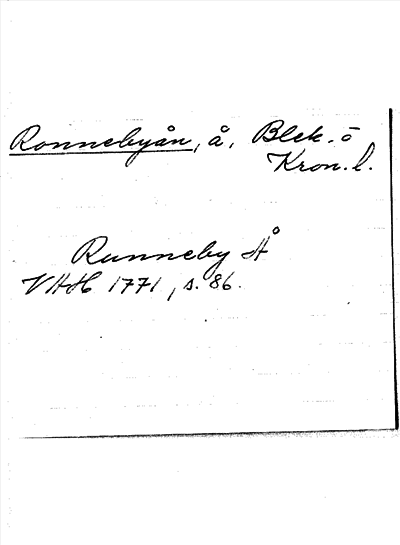 Ronnebyån, å, Blek. o
Kron. l.
Runneby Å
VAH 1771, s. 86.